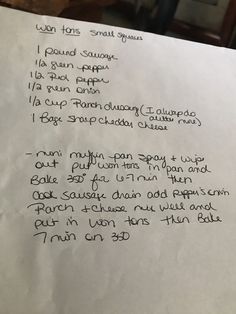 Won tons small squares
1 pound sausage
1/2 green pepper
1/2 Red pepper
1/2 green onion
1/2 cup Ranch dressing (I always do
a little more)
1 Bage sharp cheddar cheese
- mini muffin pan spray + wip
out put won tons in pan and
Bake 350° for 6-7 min then
Cook sausage drain add peppers onion
Ranch + cheese mix well and
put in won tons then Bake
7 min on 350